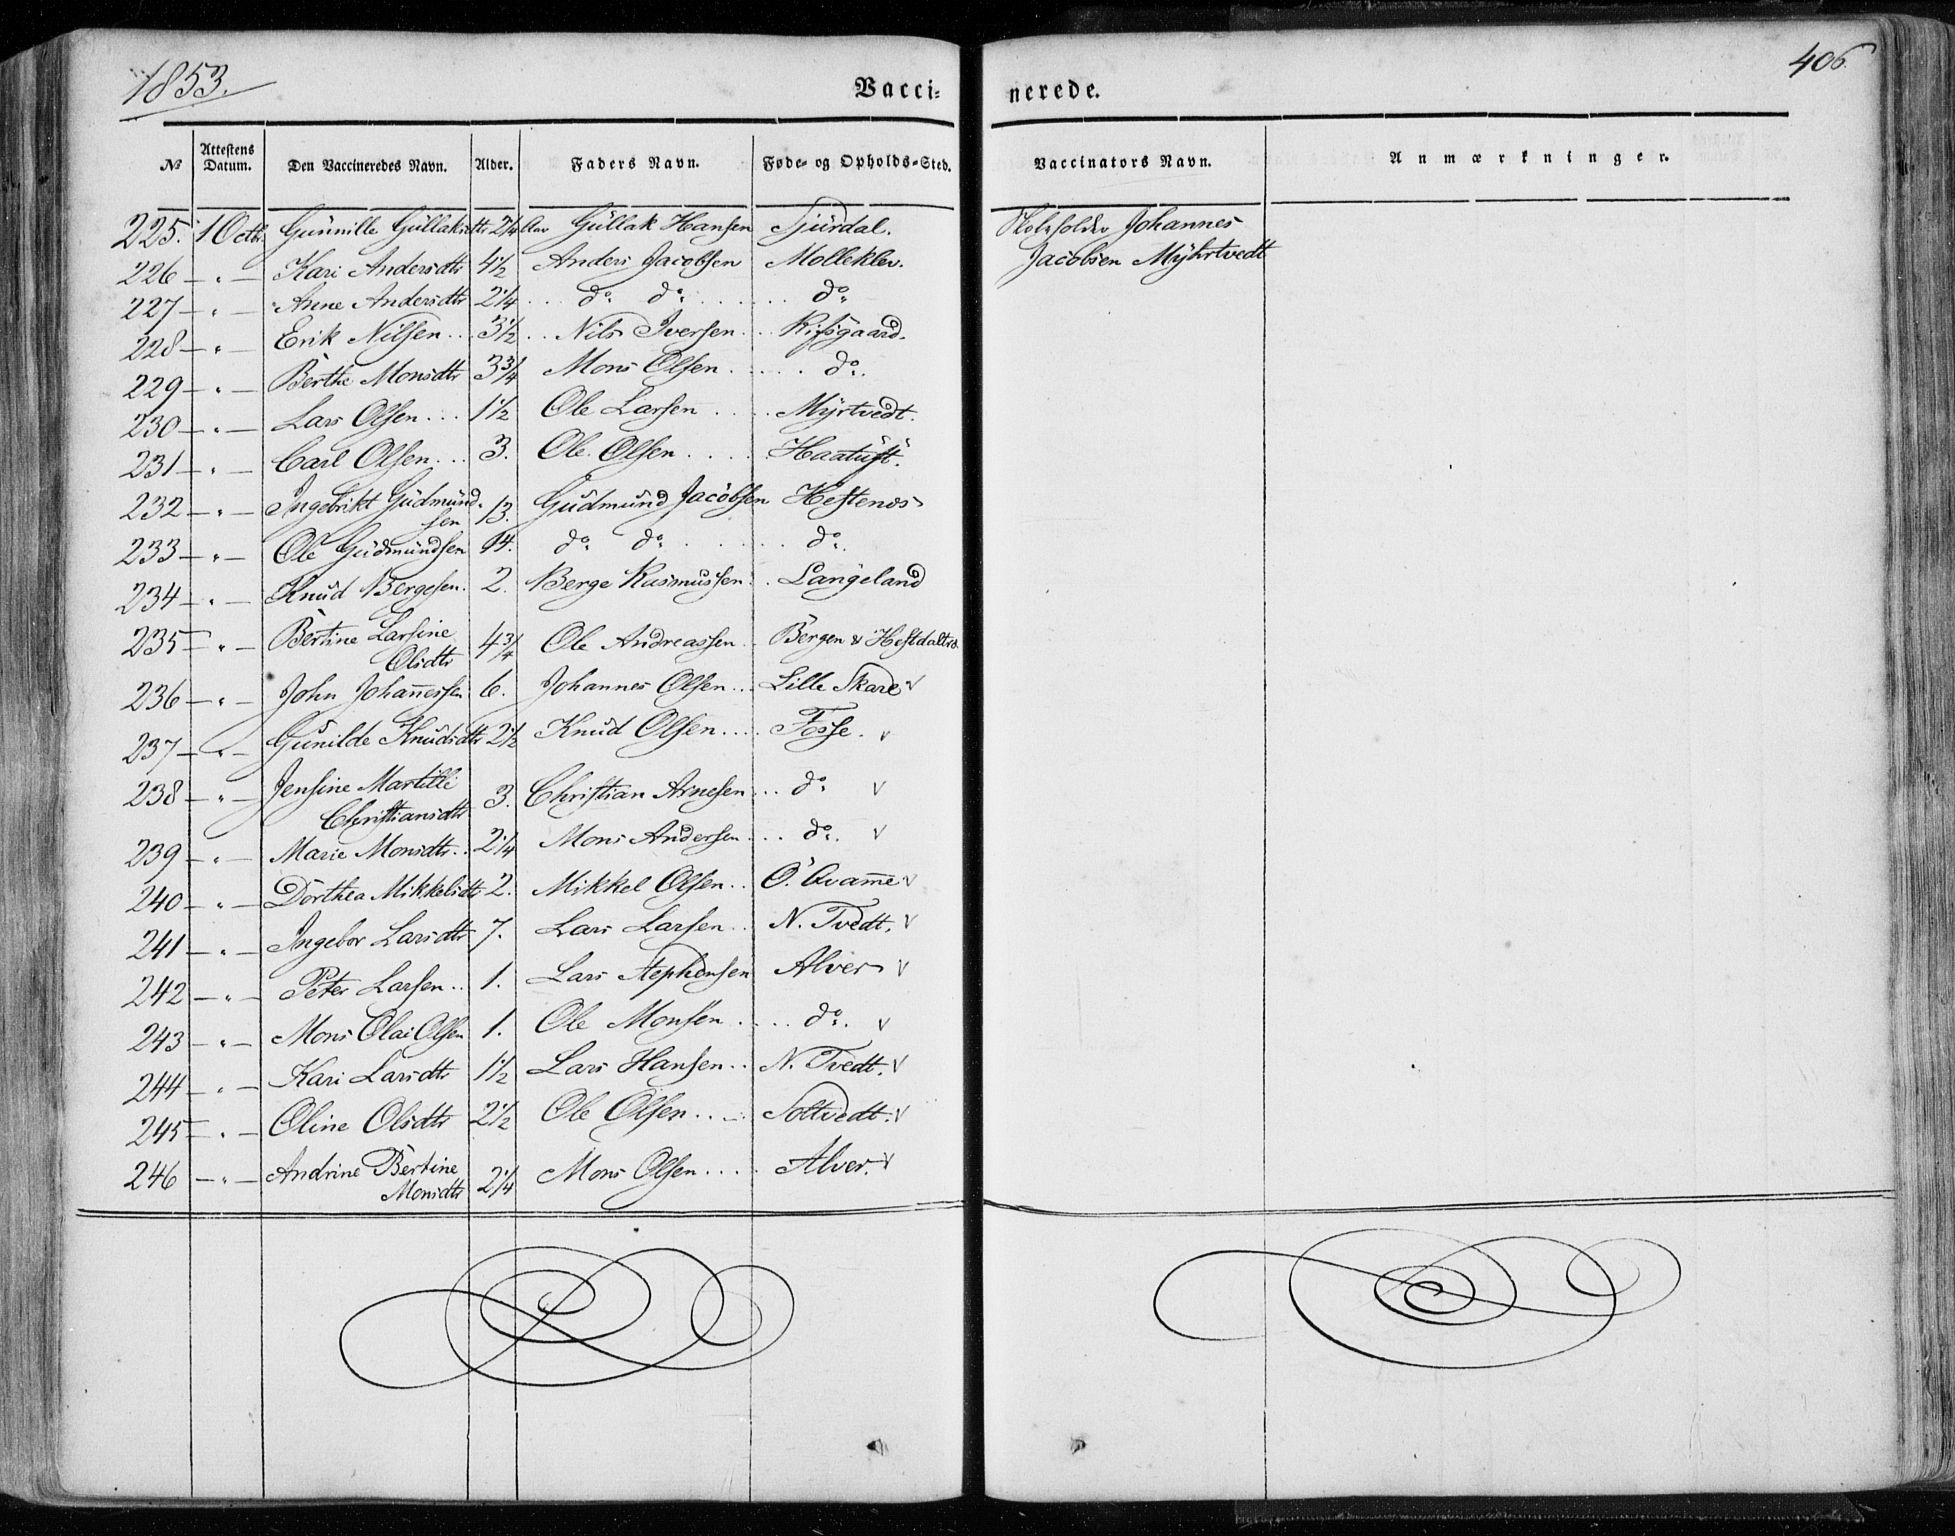 1853.
406.
Vacci- nerede.
№ Attestens Datum. Den Vaccineredes Navn. Alder. Faders Navn. Føde- og Opholds-Sted. Vaccinators Navn. Anmærkninger.
225. 1 Octb. Günnille Güllaksdtr 2 1/4 Aar Güllak Hansen Sjürdal. Skoleholder Johannes
226 - " - Kari Andersdtr 4 1/2 Anders Jacobsen Molleklev. Jacobsen Myhrtvedt
227 - " - Anne Andersdtr 2 1/4 ... do do ... do
228 - " - Erik Nilsen ... 3 1/2 .. Nils Iversen ... Risgaard.
229 - " - Berthe Monsdtr 3 3/4 Mons Olsen ..... do.
230 - " - Lars Olsen ... 1 1/2 Ole Larsen .... Myrtvedt.
231 - " - Carl Olsen ... 3. Ole Olsen .... Haatuft.
232 - " - Ingebrikt Güdmünd- 13. Güdmünd Jacobsen Hestenes
sen
233 - " - Ole Güdmündsen 14. do do ... do.
234 - " - Knüd Bergesen. 2. Berge Rasmussen .. Langeland
235 - " - Bertine Larsine 4 3/4 Ole Andreassen .. Bergen &
Olsdtr
236 - " - John Johannessen 6. Johannes Olsen ... Lille Skare v
237 - " - Günilde Knüdsdtr 2 1/2 Knüd Olsen .... Fosse. v
238 - " - Jensine Martilli 3. Christian Arnesen ... do v
Christiansdtr
239 - " - Marie Monsdtr .. 2 1/4 Mons Andersen ... do. v
240 - " - Dorthea Mikkelsdtr 2. Mikkel Olsen .. O. Qvamme v
241 - " - Ingebor Larsdtr 7. Lars Larsen .. N. Tvedt. v
242 - " - Peter Larsen .. 1. Lars Stephensen Alver v
243 - " - Mons Olai Olsen 1. Ole Monsen .... do. v
244 - " - Kari Larsdtr 1 1/2 Lars Hansen .. N. Tvedt. v
245 - " - Oline Olsdtr 2 1/2 Ole Olsen .... Soltvedt. v
246 - " - Andrine Bertine 2 1/4 Mons Olsen .... Alver. v
Monsdtr